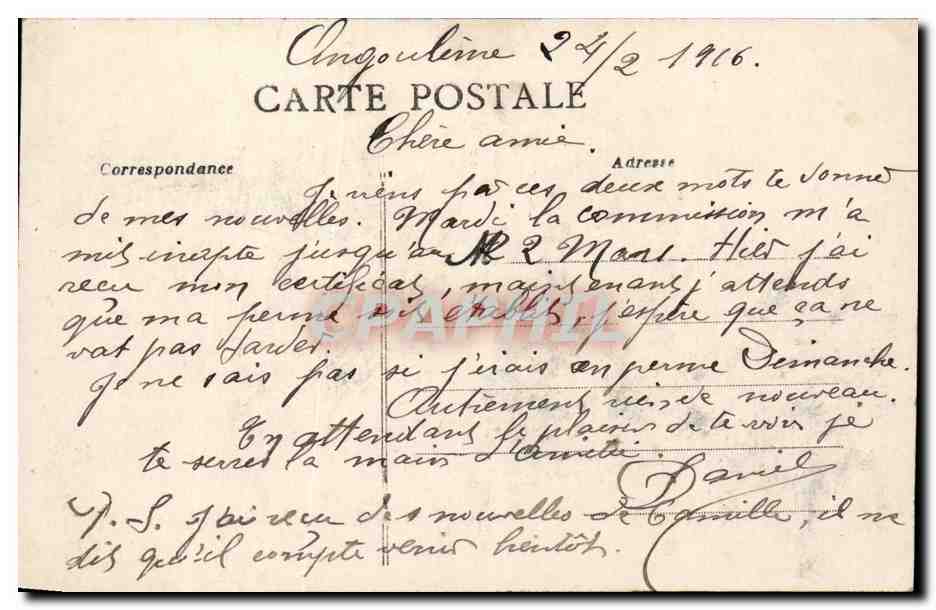 Angoulême 24/2 1916.
CARTE POSTALE
Chère amie.
Correspondance
Adresse
Je viens par ces deux mots te donner
de mes nouvelles. Mardi la commission m'a
mis inapte jusqu'au 22 Mars. Hier j'ai
recu mon certificat, maintenant j'attends
que ma perme soit établit, j'espère que ça ne
vat pas tarder.
Je ne sais pas si j'irais en perme Dimanche.
Autrement rien de nouveau.
En attendant le plaisir de te voir je
te serres la main d'amitié.
Daniel
P.S. J'ai recu des nouvelles de Camille, il me
dis qu'il compte venir bientôt.
CPAPHIL